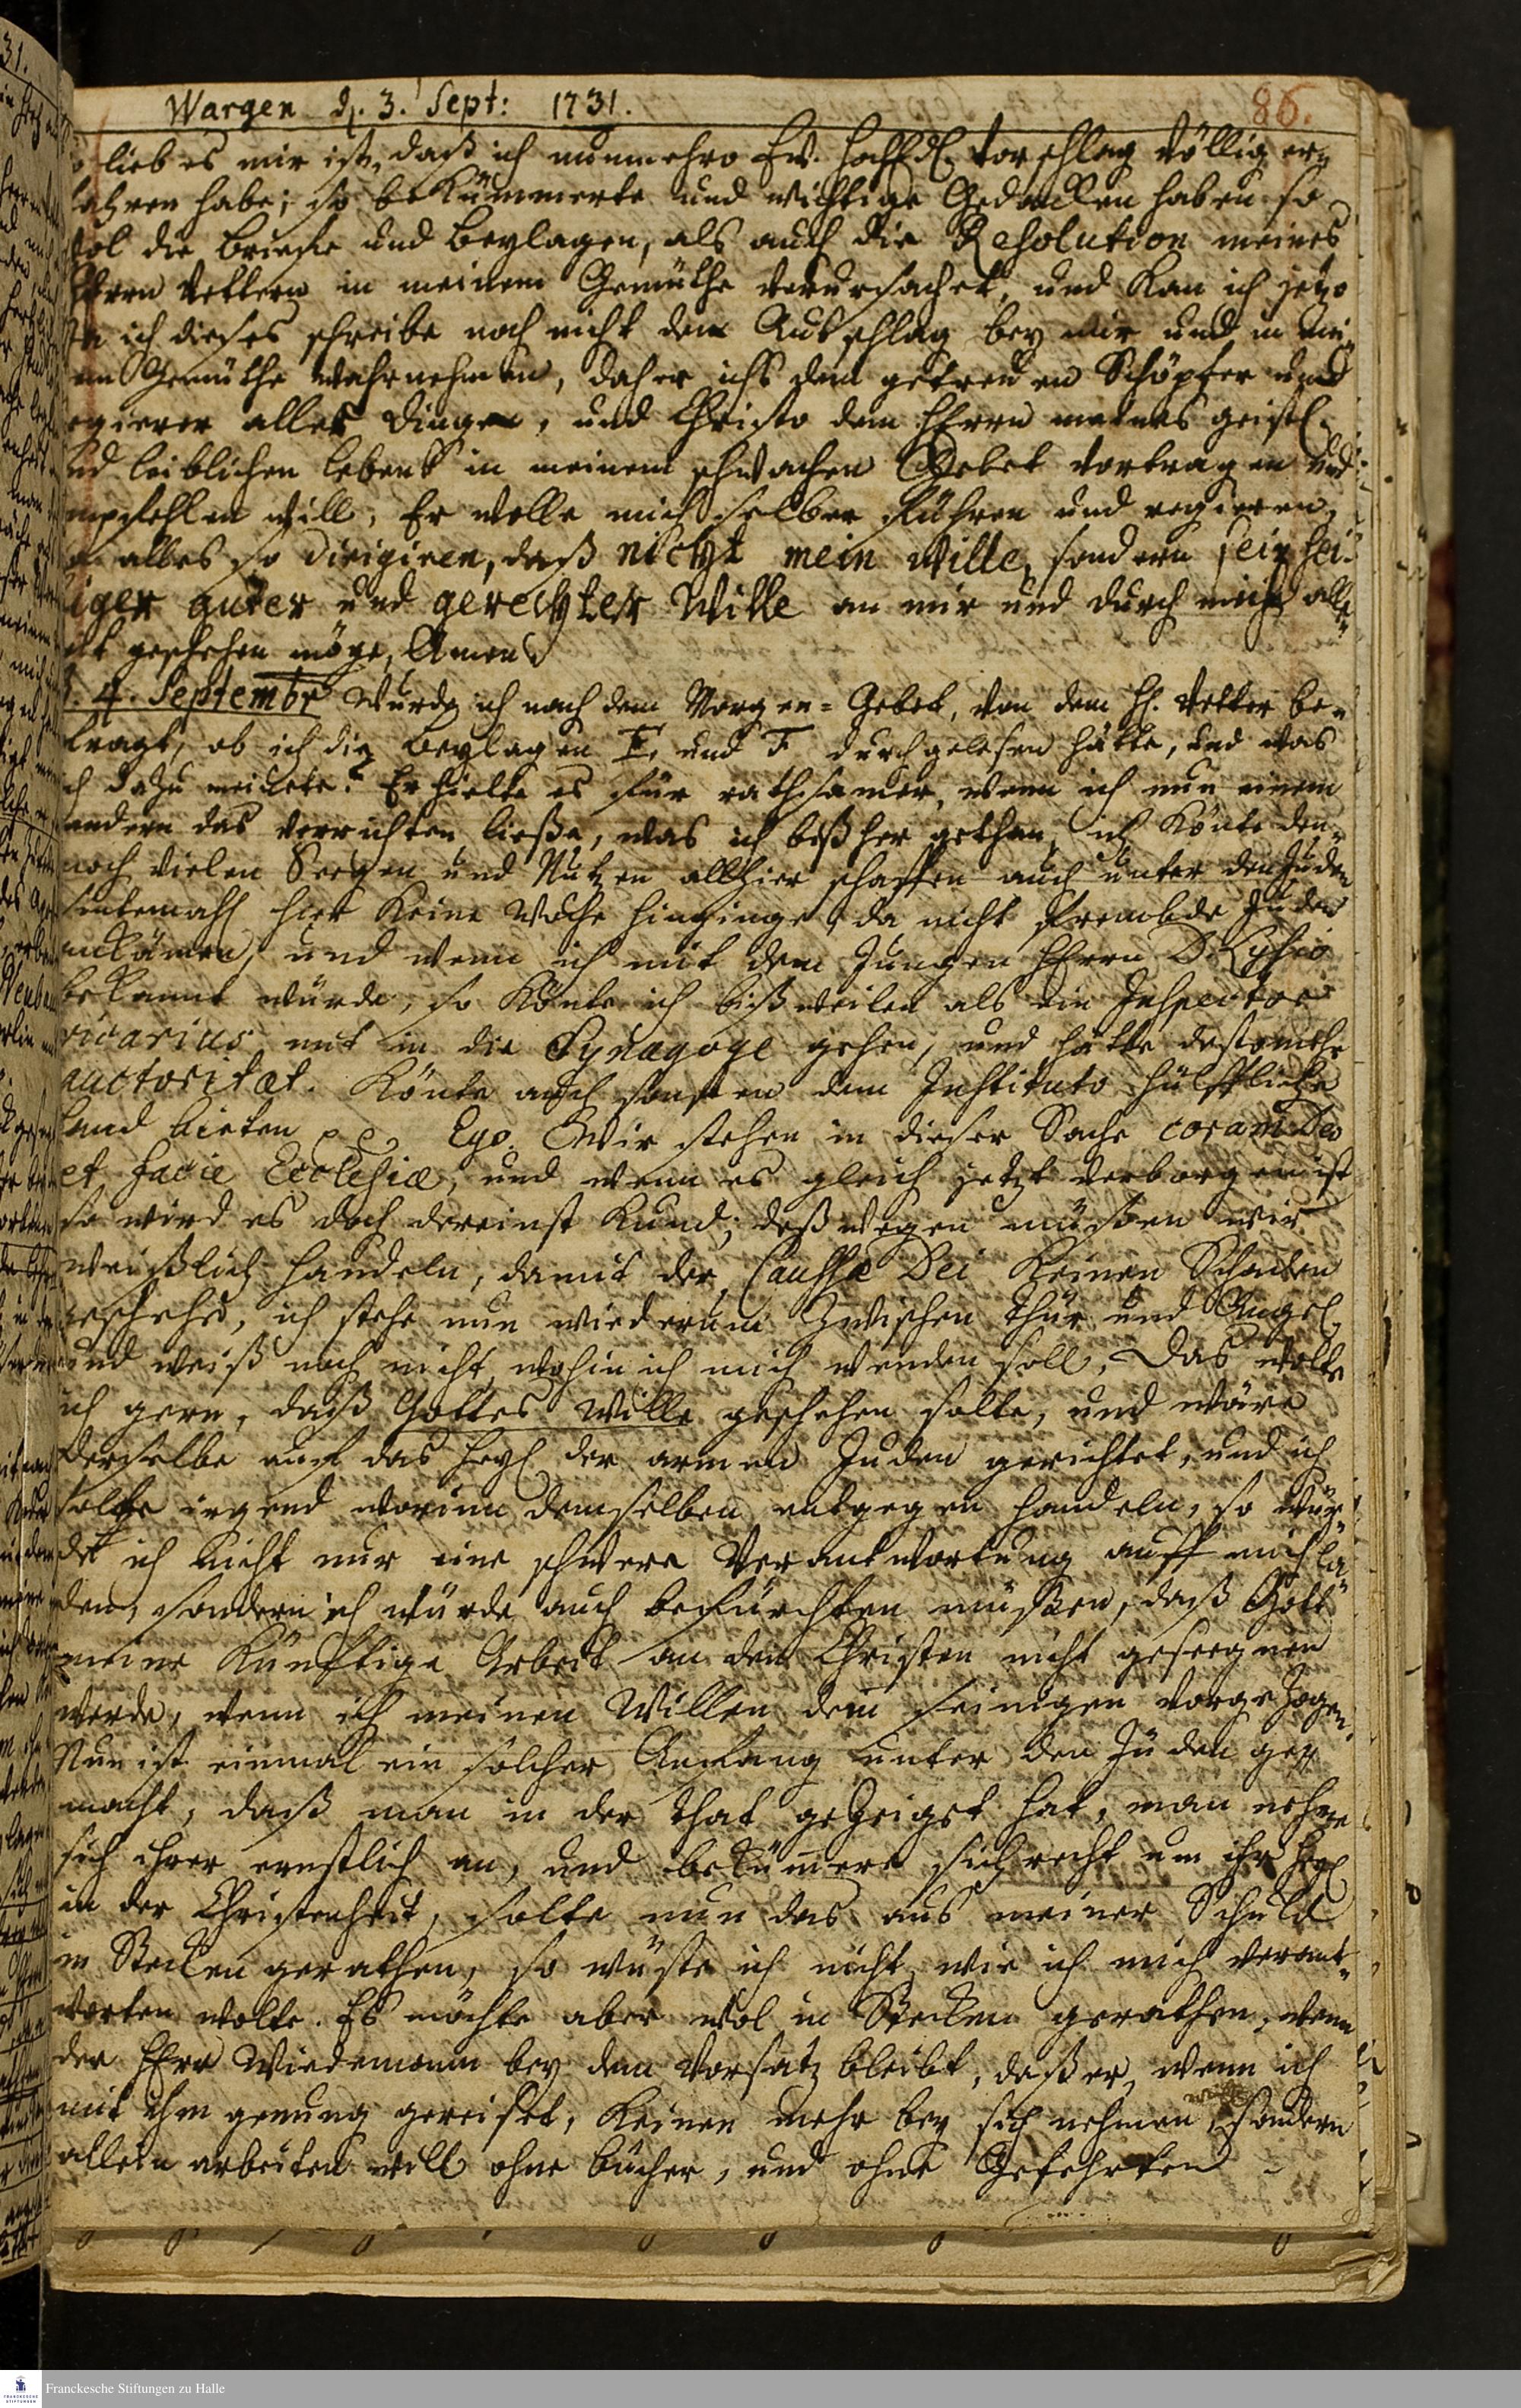 Wargen d. 3. Sept: 1731.
86.
o lieb es mir ist, daß ich nunmehro Ew. HochEdl. Vorschlag völlig er-
fahren habe; so bekümmerte und wichtige Gedancken haben so
wol die Briefe und Beylagen, als auch die Resolution meines
Herrn Vettern in meinem Gemüthe verursachet, und kan ich jetzo
da ich dieses schreibe noch nicht den Ausschlag bey mir und in mei-
nem Gemüthe wahrnehmen, daher ichs dem getreuen Schöpfer und
egierer aller Dinge, und Christo dem HErrn meines geistl.
und leiblichen Lebens in meinem schwachen Gebet vortragen und
empfehlen will, Er wolle mich selber führen und regieren,
alles so dirigiren, daß nicht mein Wille, sondern sein hei-
iger guter und gerechter Wille an mir und durch mich alle-
eit geschehen möge, Amen.
d. 4. Septembr wurde ich nach dem Morgen-Gebet, von dem H. Vetter be-
fragt, ob ich die Beylagen E, und F durchgelesen hätte, und was
ich dazu meinete? Er hielte es für rathsamer, wenn ich nun einem
andern das verrichten ließe, was ich bißher gethan, ich könte den-
noch vielen Seegen und Nutzen allhier schaffen auch unter den Juden
sintemahl hier keine Woche hinginge, da nicht frembde Juden
nkämen, und wenn ich mit dem jungen Herrn D. Lysio
bekannt würde, so könte ich bißweilen als ein Inspector
vicarius mit in die Synagoge gehen, und hätte destomehr
auctoritæt. Könte auch sonsten dem Instituto hülffliche
Hand bieten p p. Ego. Wir stehen in dieser Sache coram Deo
et facie Ecclesiæ, und wenn es gleich jetzt verborgen ist
so wird es doch dereinst kund; deßwegen müssen wir
weißlich handeln, damit der Caussæ Dei keinen Schaden
geschehe, ich stehe nun wiederum zwischen Thür und Angel
und weiß noch nicht, wohin ich mich wenden soll. Das wolte
ich gern, daß Gottes Wille geschehen solte, und wäre
derselbe auf das Heyl der armen Juden gerichtet, und ich
solte irgend worinn demselben entgegen handeln, so wür-
de ich nicht nur eine schwere Verantwortung auff mich la-
den, sondern ich würde auch befürchten müssen, daß Gott
meine künfftige Arbeit an den Christen nicht geseegnen
werde, wenn ich meinen Willen dem seinigen vorgezogen.
Nun ist einmal ein solcher Anfang unter den Juden ge-
macht, daß man in der That gezeiget hat, man nehme
sich ihrer ernstlich an, und bekümmere sich recht um ihr Heyl
in der Christenheit, solte nun das aus meiner Schuld
in Stecken gerathen, so wüste ich nicht, wie ich mich verant-
worten wolte. Es möchte aber wol in Stecken gerathen, wenn
der Herr Wiedemann bey dem Vorsatz bleibt, daß er, wenn ich
mit ihm genung gereiset, keinen mehr bey sich nehmen, sondern
allein arbeiten will ohne Bücher, und ohne Gefehrten
Franckesche Stiftungen zu Halle